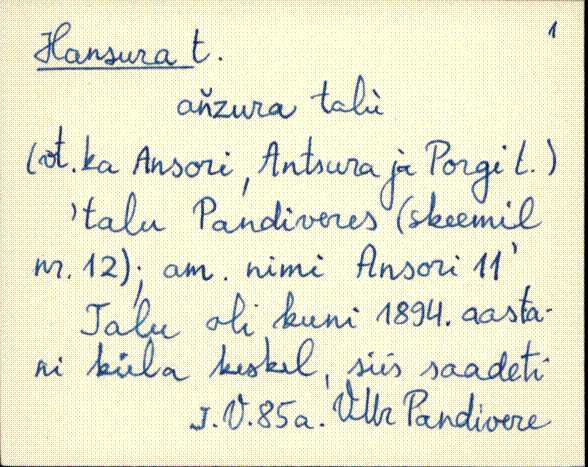 1
Hansura t.
ańzura talù
(vt. ka Ansori, Antsura ja Porgi t.)
'talu Pandiveres (skeemil
nr. 12); am. nimi Ansori 11'
Talu oli kuni 1894. aasta-
ni küla keskel, siis saadeti
I.V.85a. VMr Pandivere